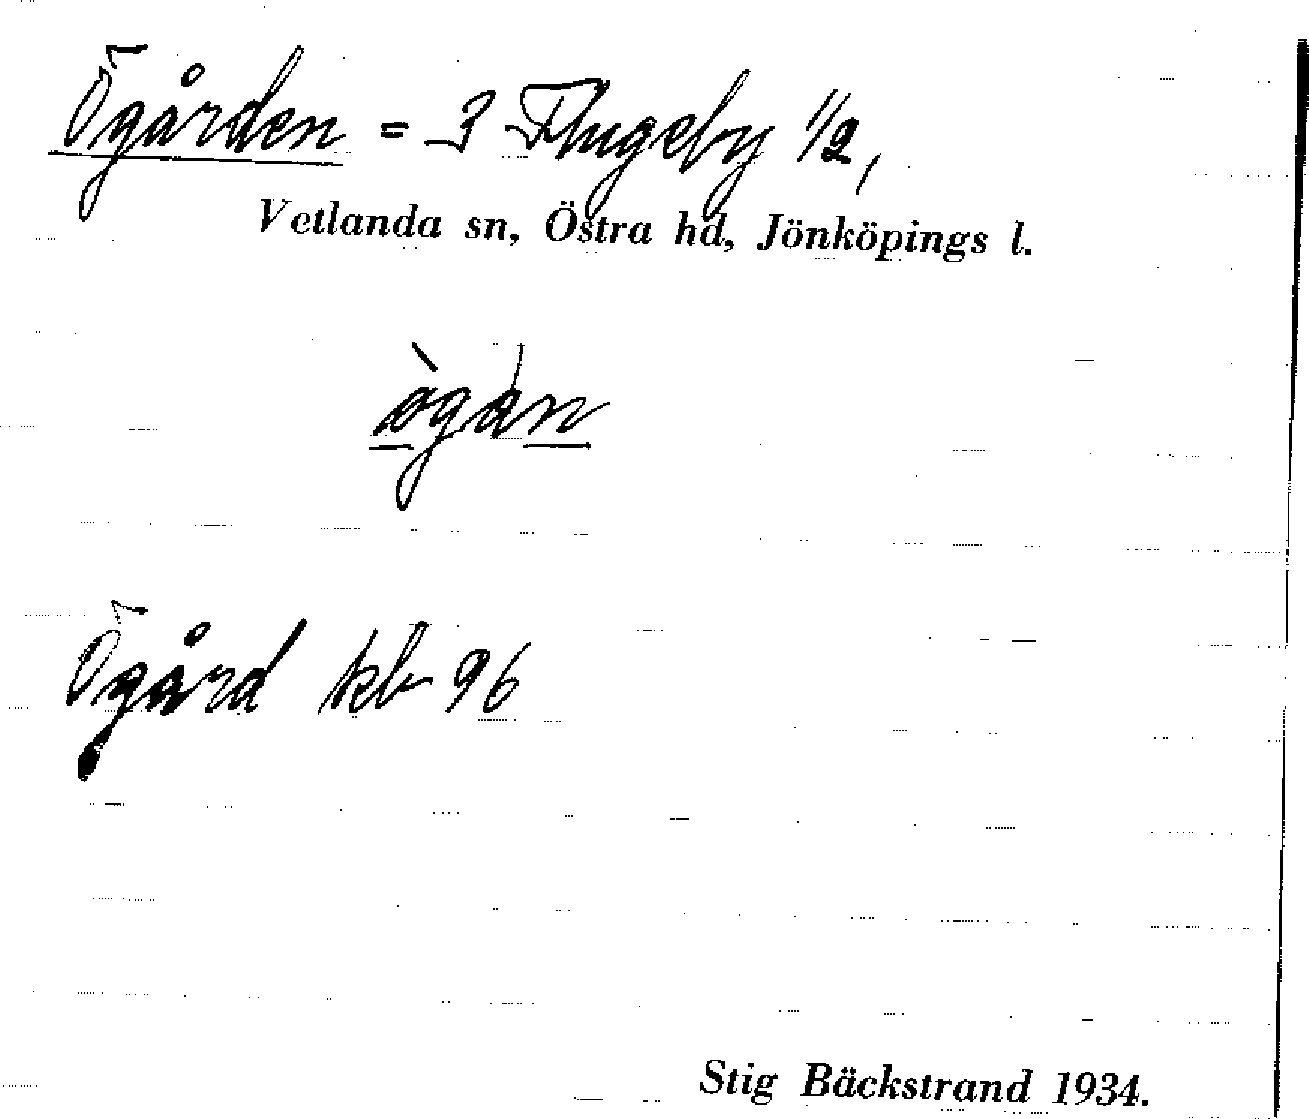 Ögården = 3 Flugeby 1/2,
Vetlanda sn, Östra hd, Jönköpings l.
Ögård kb 96
Stig Bäckstrand 1934.